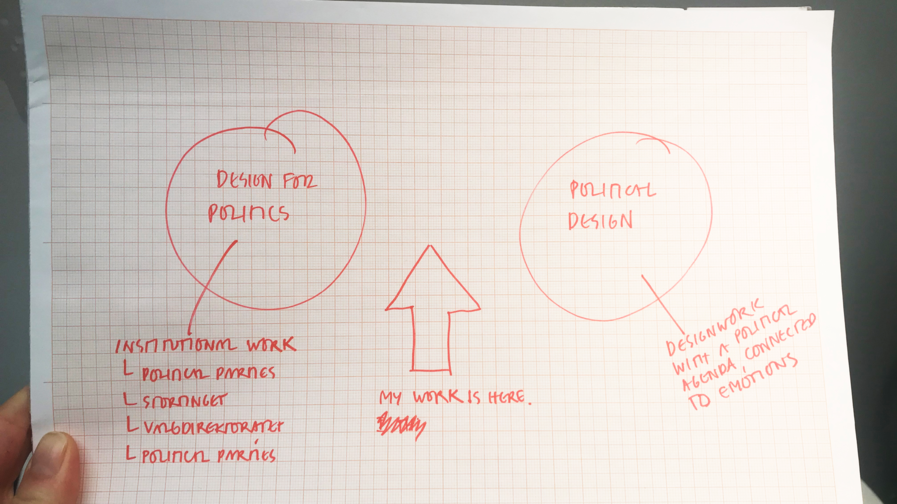 DESIGN FOR
POLITICS
POLITICAL
DESIGN
INSTITUTIONAL WORK
POLITICAL PARTIES
STORTINGET
VALGDIREKTORATET
POLITICAL PARTIES
MY WORK IS HERE.
DESIGNWORK
WITH A POLITICAL
AGENDA, CONNECTED
TO EMOTIONS